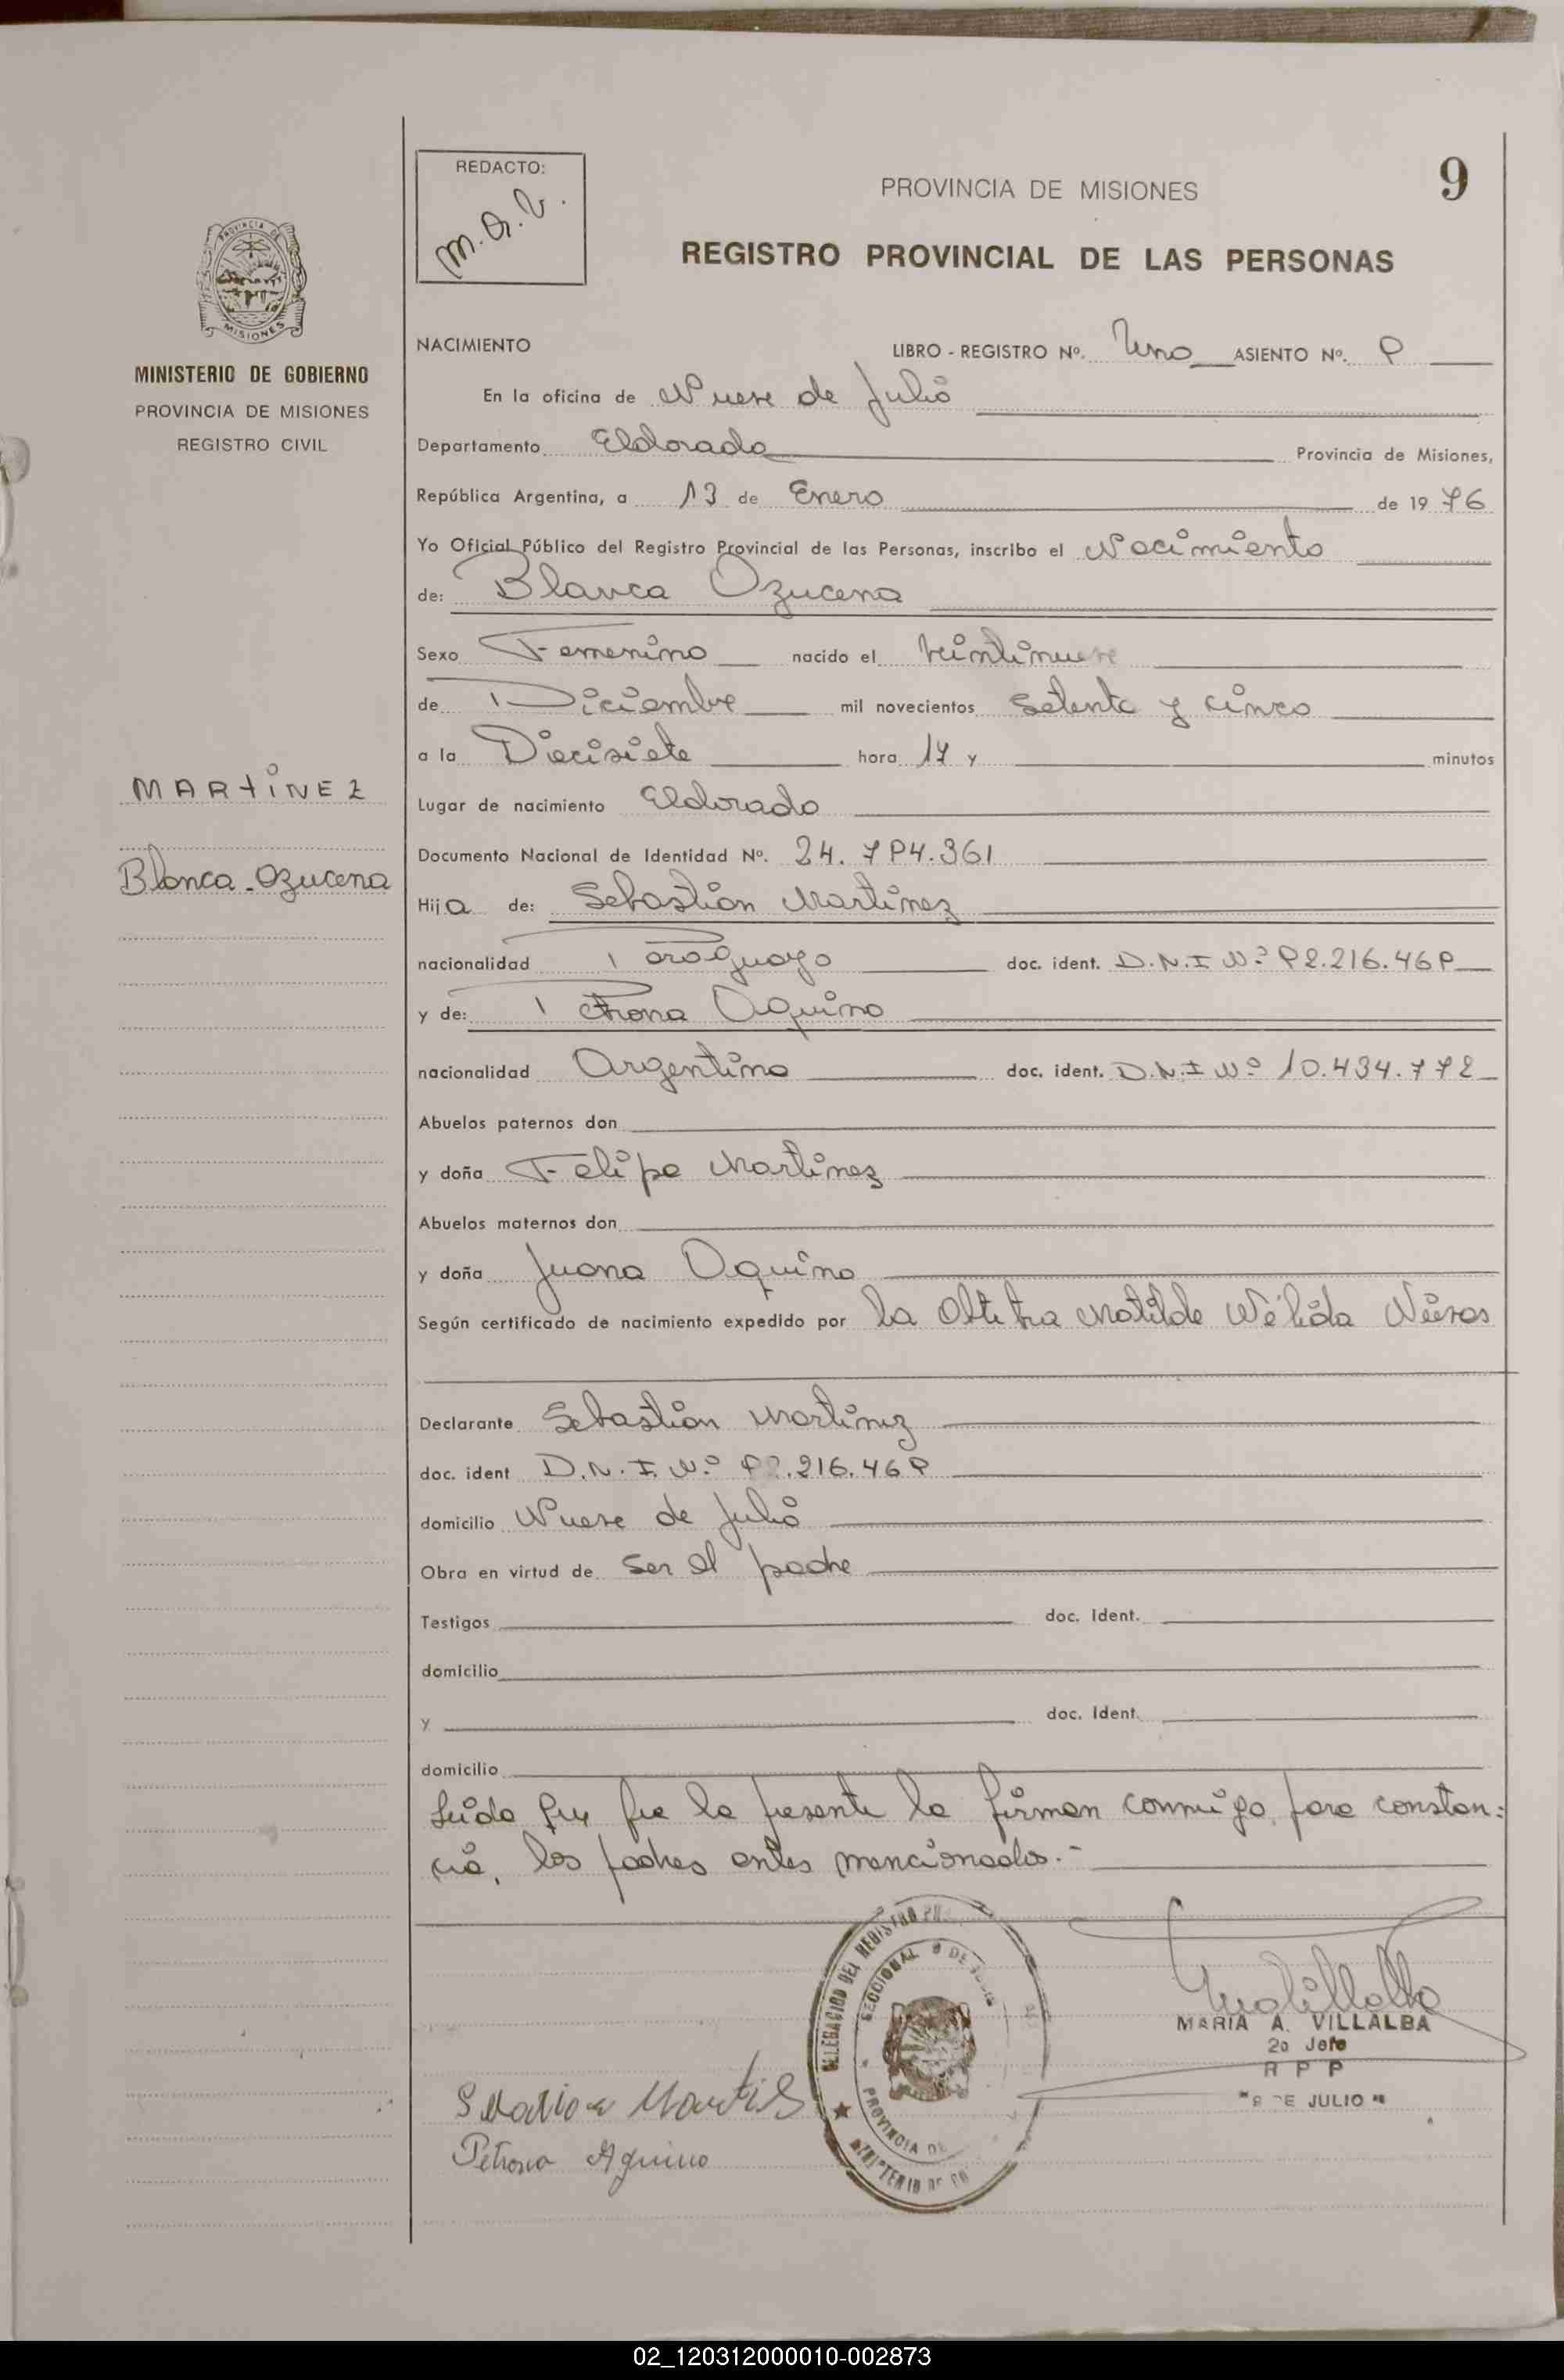 REDACTO:
M.A.V.
PROVINCIA DE MISIONES
9
REGISTRO PROVINCIAL DE LAS PERSONAS
PROVINCIA DE
MISIONES
MINISTERIO DE GOBIERNO
PROVINCIA DE MISIONES
REGISTRO CIVIL
NACIMIENTO
LIBRO - REGISTRO Nº. Uno ASIENTO Nº. 9
En la oficina de Nueve de Julio
Departamento Eldorado Provincia de Misiones,
República Argentina, a 13 de Enero de 1976
Yo Oficial Público del Registro Provincial de las Personas, inscribo el Nacimiento
de: Blanca Azucena
Sexo Femenino nacido el veintinueve
de Diciembre mil novecientos setenta y cinco
a la Diecisiete hora 17 y minutos
MARTINEZ
Blanca Azucena
Lugar de nacimiento Eldorado
Documento Nacional de Identidad Nº. 24.794.361
Hija de: Sebastián Martinez
nacionalidad Paraguayo doc. ident. D.N.I Nº 92.216.469
y de: Petrona Aquino
nacionalidad Argentina doc. ident. D.N.I Nº 10.434.772
Abuelos paternos don
y doña Felipa Martinez
Abuelos maternos don
y doña Juana Aquino
Según certificado de nacimiento expedido por la Matilde Nélida
Declarante Sebastián Martinez
doc. ident D.N.I. Nº 92.216.469
domicilio Nueve de Julio
Obra en virtud de ser el padre
Testigos doc. Ident.
domicilio
y doc. Ident.
domicilio
Leida que fue la presente la firman conmigo para constan=
cia, los padres antes mencionados.-
DELEGACION DEL REGISTRO
SECCIONAL 9 DE JULIO
PROVINCIA DE
MINISTERIO DE GO
MARIA A. VILLALBA
2o Jefe
R P P
"9 DE JULIO"
Petrona Aquino
02_120312000010-002873